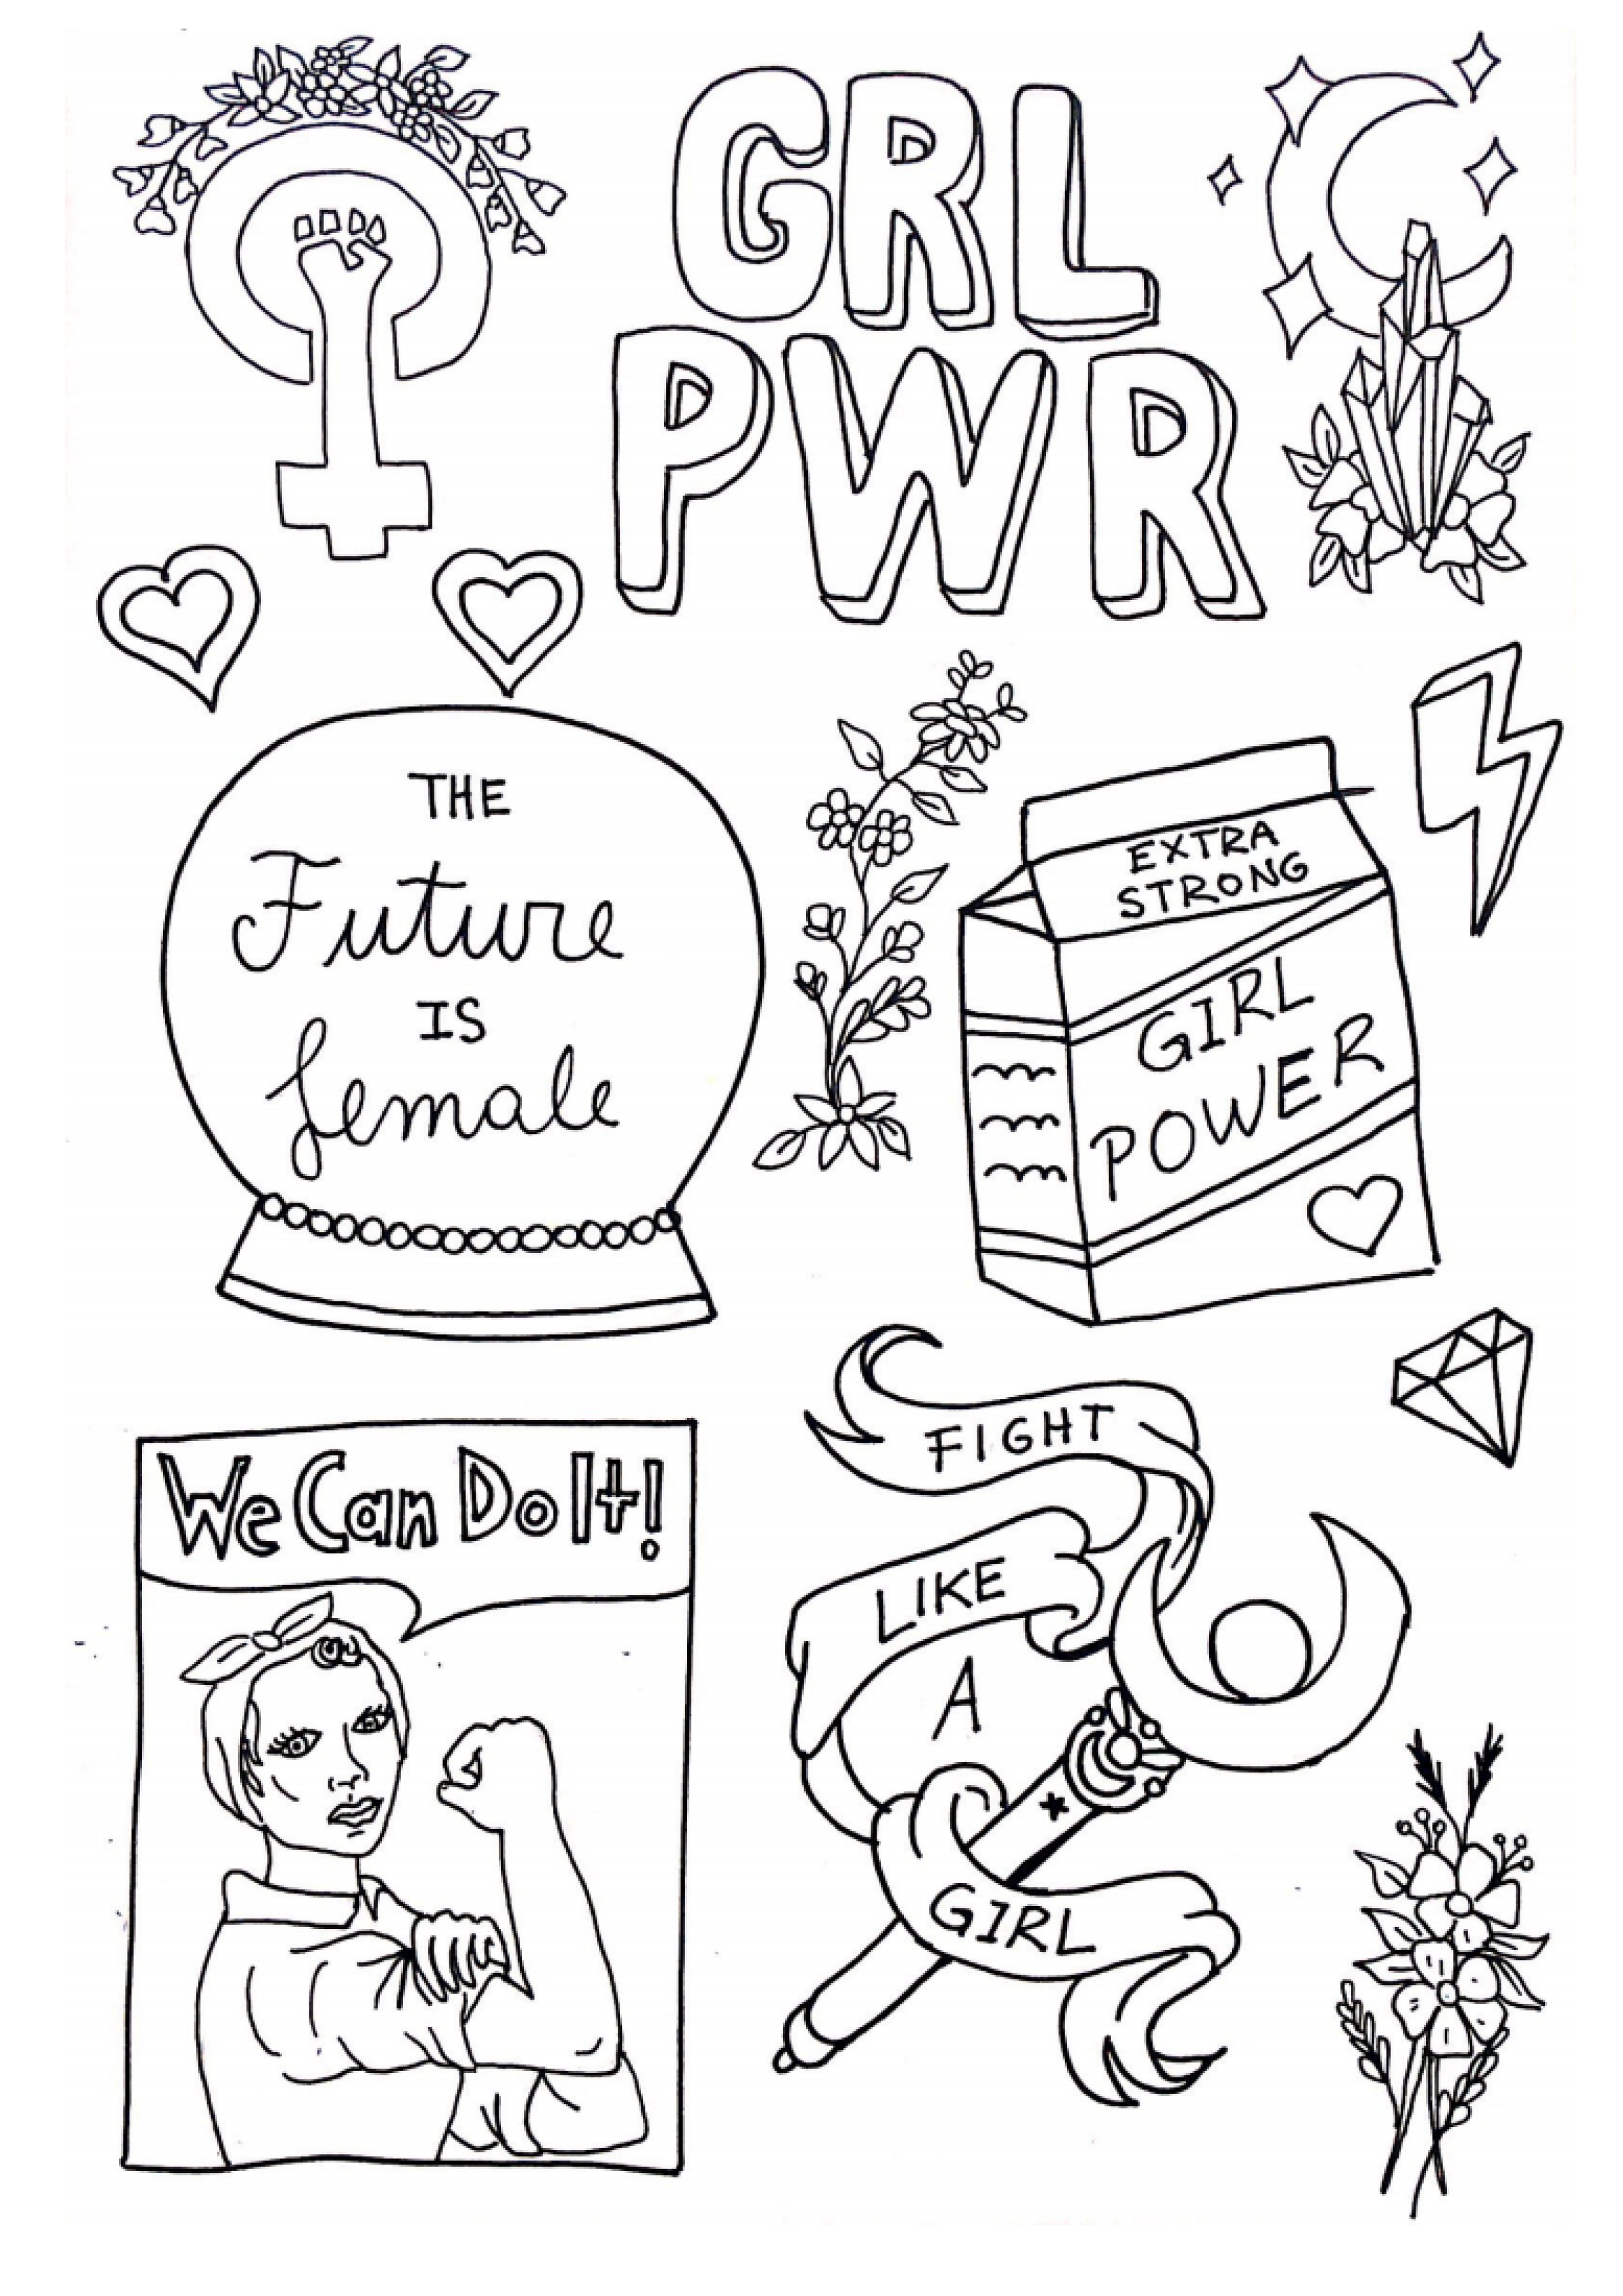 GRL
PWR
THE
Future
IS
female
EXTRA
STRONG
GIRL
POWER
We Can Do It!
FIGHT
LIKE
A
GIRL